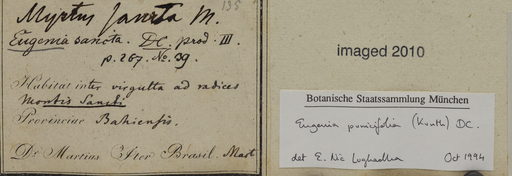 135
Myrtus sancta M.
Eugenia sancta. DC. prod. III.
p. 267. No. 39.
Habitat inter virgulta ad radices
Montis Sancti
Provinciae Bahiensis.
Dr. Martius Iter Brasil. Mart
imaged 2010
Botanische Staatssammlung München
Eugenia punicifolia (Kunth) DC.
det E. Nic Lughadha Oct 1994